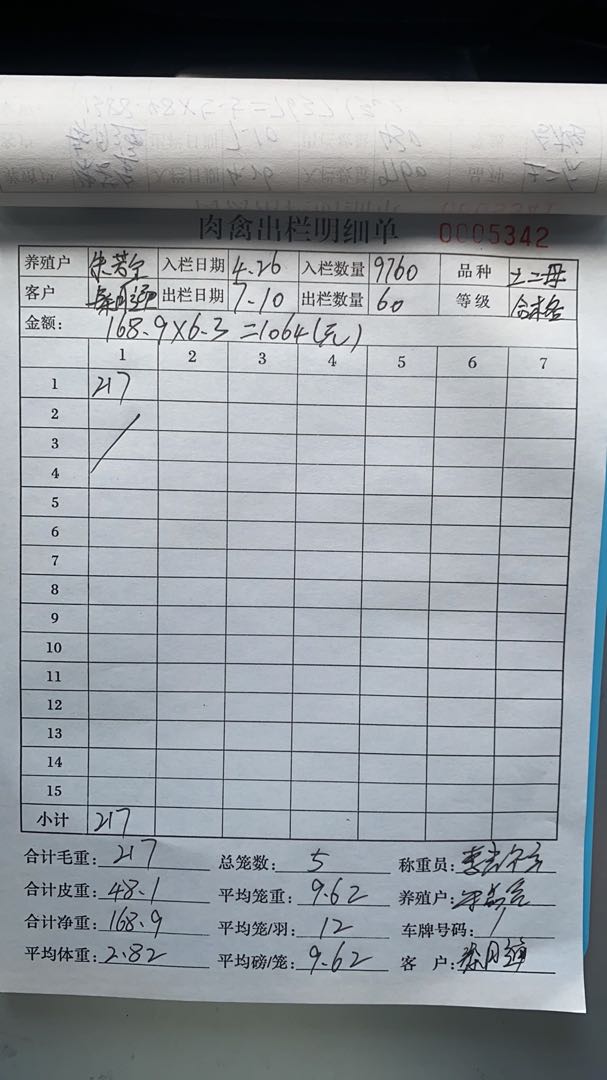 肉禽出栏明细单 0005342
养殖户 入栏日期 4.26 入栏数量 9760 品种 土二母
客户 出栏日期 7.10 出栏数量 60 等级 合格
金额: 168.9×6.3=1064(元)
1 2 3 4 5 6 7
1 217
2
3
4
5
6
7
8
9
10
11
12
13
14
15
小计 217
合计毛重: 217 总笼数: 5 称重员:
合计皮重: 48.1 平均笼重: 9.62 养殖户:
合计净重: 168.9 平均笼/羽: 12 车牌号码: /
平均体重: 2.82 平均磅/笼: 9.62 客 户: